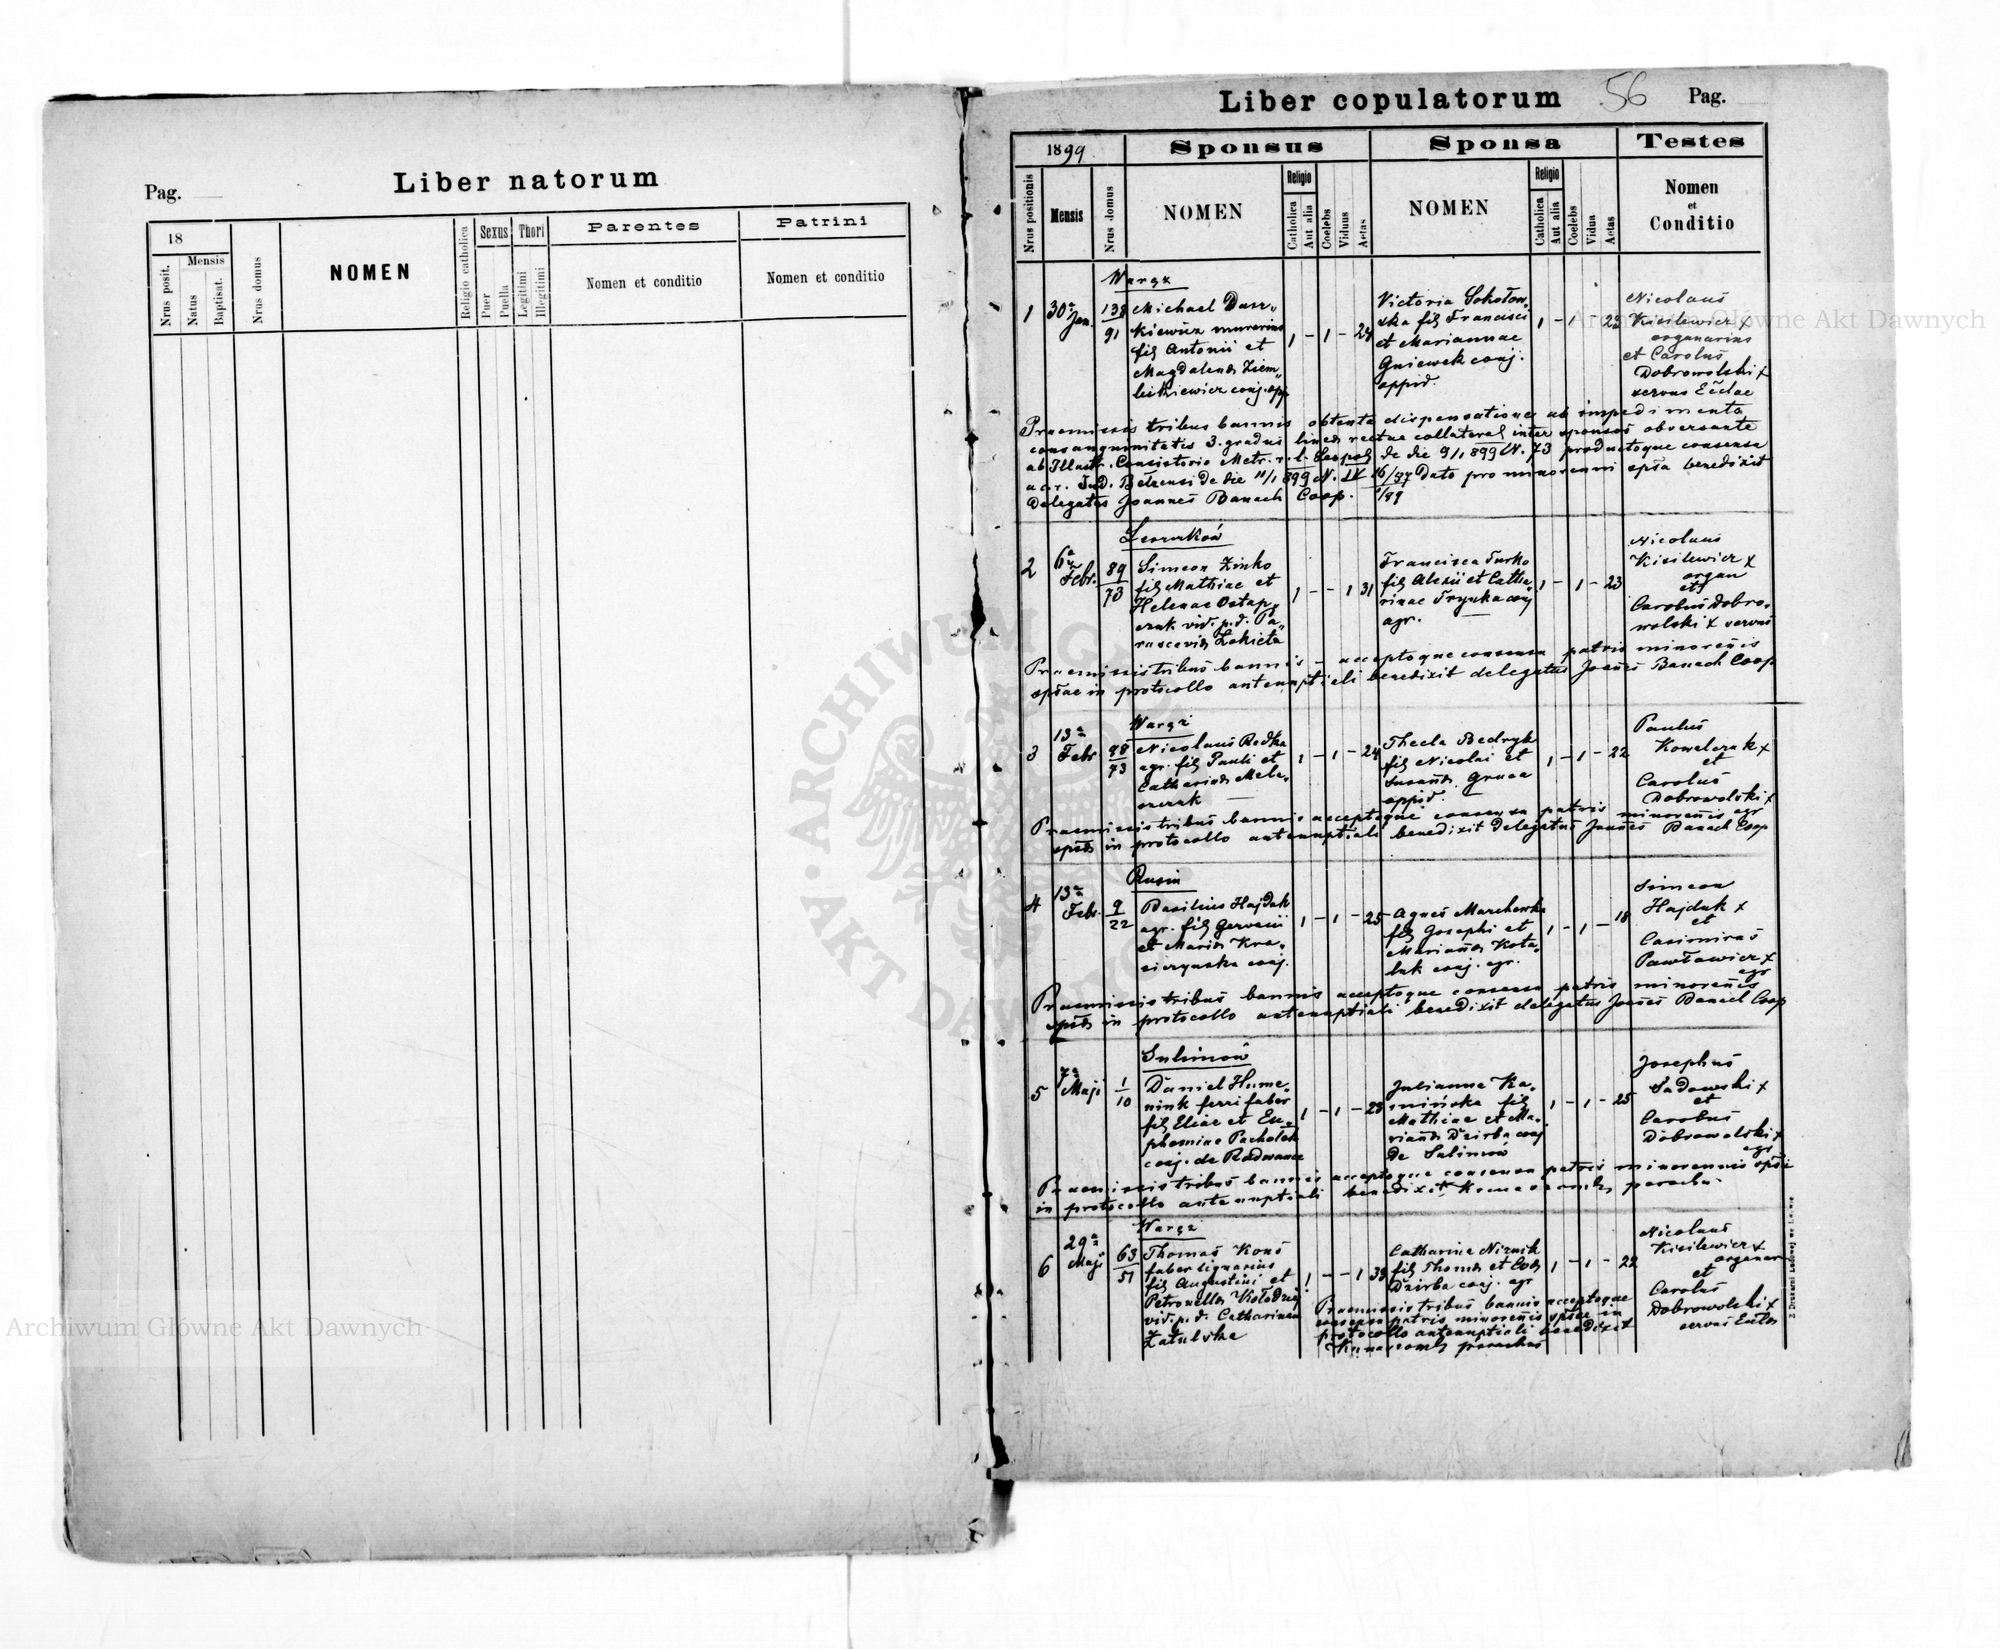 Pag.
Liber natorum
18
Mensis
Nrus posit.
Natus
Baptisat.
Nrus domus
NOMEN
Religio catholica
Sexus
Puer
Puella
Thori
Legitimi
Illegitimi
Parentes
Nomen et conditio
Patrini
Nomen et conditio
Liber copulatorum
56
Pag.
1899.
Sponsus
Sponsa
Testes
Nrus positionis
Mensis
Nrus domus
NOMEN
Religio
Catholica
Aut alia
Coelebs
Viduus
Aetas
NOMEN
Religio
Catholica
Aut alia
Coelebs
Vidua
Aetas
Nomen
et
Conditio
Waręż
1
30a
Jan.
138
91
Michael Dasz„
kiewicz murarius
fil Antonii et
Magdalena Ziem„
conj. opp
1 – 1 – 24
Victoria Sokołow„
ska fil Francisci
et Mariannae
Gniewek conj.
oppid.
1 – 23
Nicolaus
Kisilewicz x
organarius
et Carolus
Dobrowolski x
servus Eccłae
Praemissis tribus bannis obtenta dispensatione ab impedimento
consanguinitatis 3. gradus linea rectae collateral inter sponsos obversante
ab Illustr. Consistorio Metr. r. l. Leopol de die 9/1 899 N. 73 productoque consensu
Jud. Bełzensi de die 11/1 899 N. IV 16/97 Dato pro minorenni spsa benedixit
1/99
Delegatus Joannes Banach Coop.
2
6a
Febr.
89
73
Simeon Zinko
fil Mathiae et
Helenae Ostap„
czuk vid. p. d. Pa„
rascevia Łokieta
1 – – 1 31
Francisca Turko
fil Alexii et Catha„
rinae Frynka conj
agr.
1 – 1 – 23
Nicolaus
Kisilewicz x
organ
et
Carolus Dobro„
wolski x servus
Praemissis tribus bannis – acceptoque consensu patris minorenis
spsae in protocollo antenuptiali benedixit delegatus Joanes Banach Coop
Waręż
3
13a
Febr
98
73
Nicolaus Redka
agr. fil Pauli et
Catharina
1 – 1 – 24
Thecla Bedryk
fil Nicolai et
Susanna Gruca
oppid.
1 – 1 – 22
Paulus
Kowalczuk x
et
Carolus
Dobrowolski x
agr
Praemissis tribus bannis acceptoque consensu patris minorenis
spsa in protocollo antenuptiali benedixit delegatus Joanes Banach Coop
Rusin
4
13a
Febr.
9
22
Basilius Hajdak
agr. fil Gervasii
et Maria Kra„
siczynska conj.
1 – 1 – 25
Agnes Marchewka
fil Josephi et
Marianna Kota„
luk conj. agr.
1 – 1 – 18
Simeon
Hajduk x
et
Casimirus
Pawłowicz x
agr
Praemissis tribus bannis acceptoque consensu patris minorenis
spsa in protocollo antenuptiali benedixit delegatus Joanes Banach Coop
Sulimów
5
7a
Maji
1
10
Daniel Hume„
niuk ferri faber
fil Eliae et Eu„
phemiae Pacholek
conj. de Radwance
1 – 1 – 28
Julianna Ka„
mińska fil
Mathiae et Ma„
rianna Dzirba conj
de Sulimów
1 – 1 – 25
Josephus
Sadowski x
et
Carolus
Dobrowolski x
agr
Praemissis tribus bannis acceptoque consensu patris minorennis spsae
in protocollo antenuptiali benedixit parochus
Waręż
6
29a
Maji
63
51
Thomas Konś
faber lignarius
fil Augustini et
Petronella Kołodziej
vid. p. d. Catharinam
Zatulska
1 – – 1 39
Catharina Niznik
fil Thoma et Eva
Dzirba conj. agr
1 – 1 – 22
Nicolaus
Kisilewicz x
organar
et
Carolus
Dobrowolski x
servus Eccła
Praemissis tribus bannis acceptoque
consensu patris minorenis spsae in
protocollo antenuptiali benedixit
parochus
Z Drukarni Ludowej we Lwowie
Archiwum Główne Akt Dawnych
Archiwum Główne Akt Dawnych